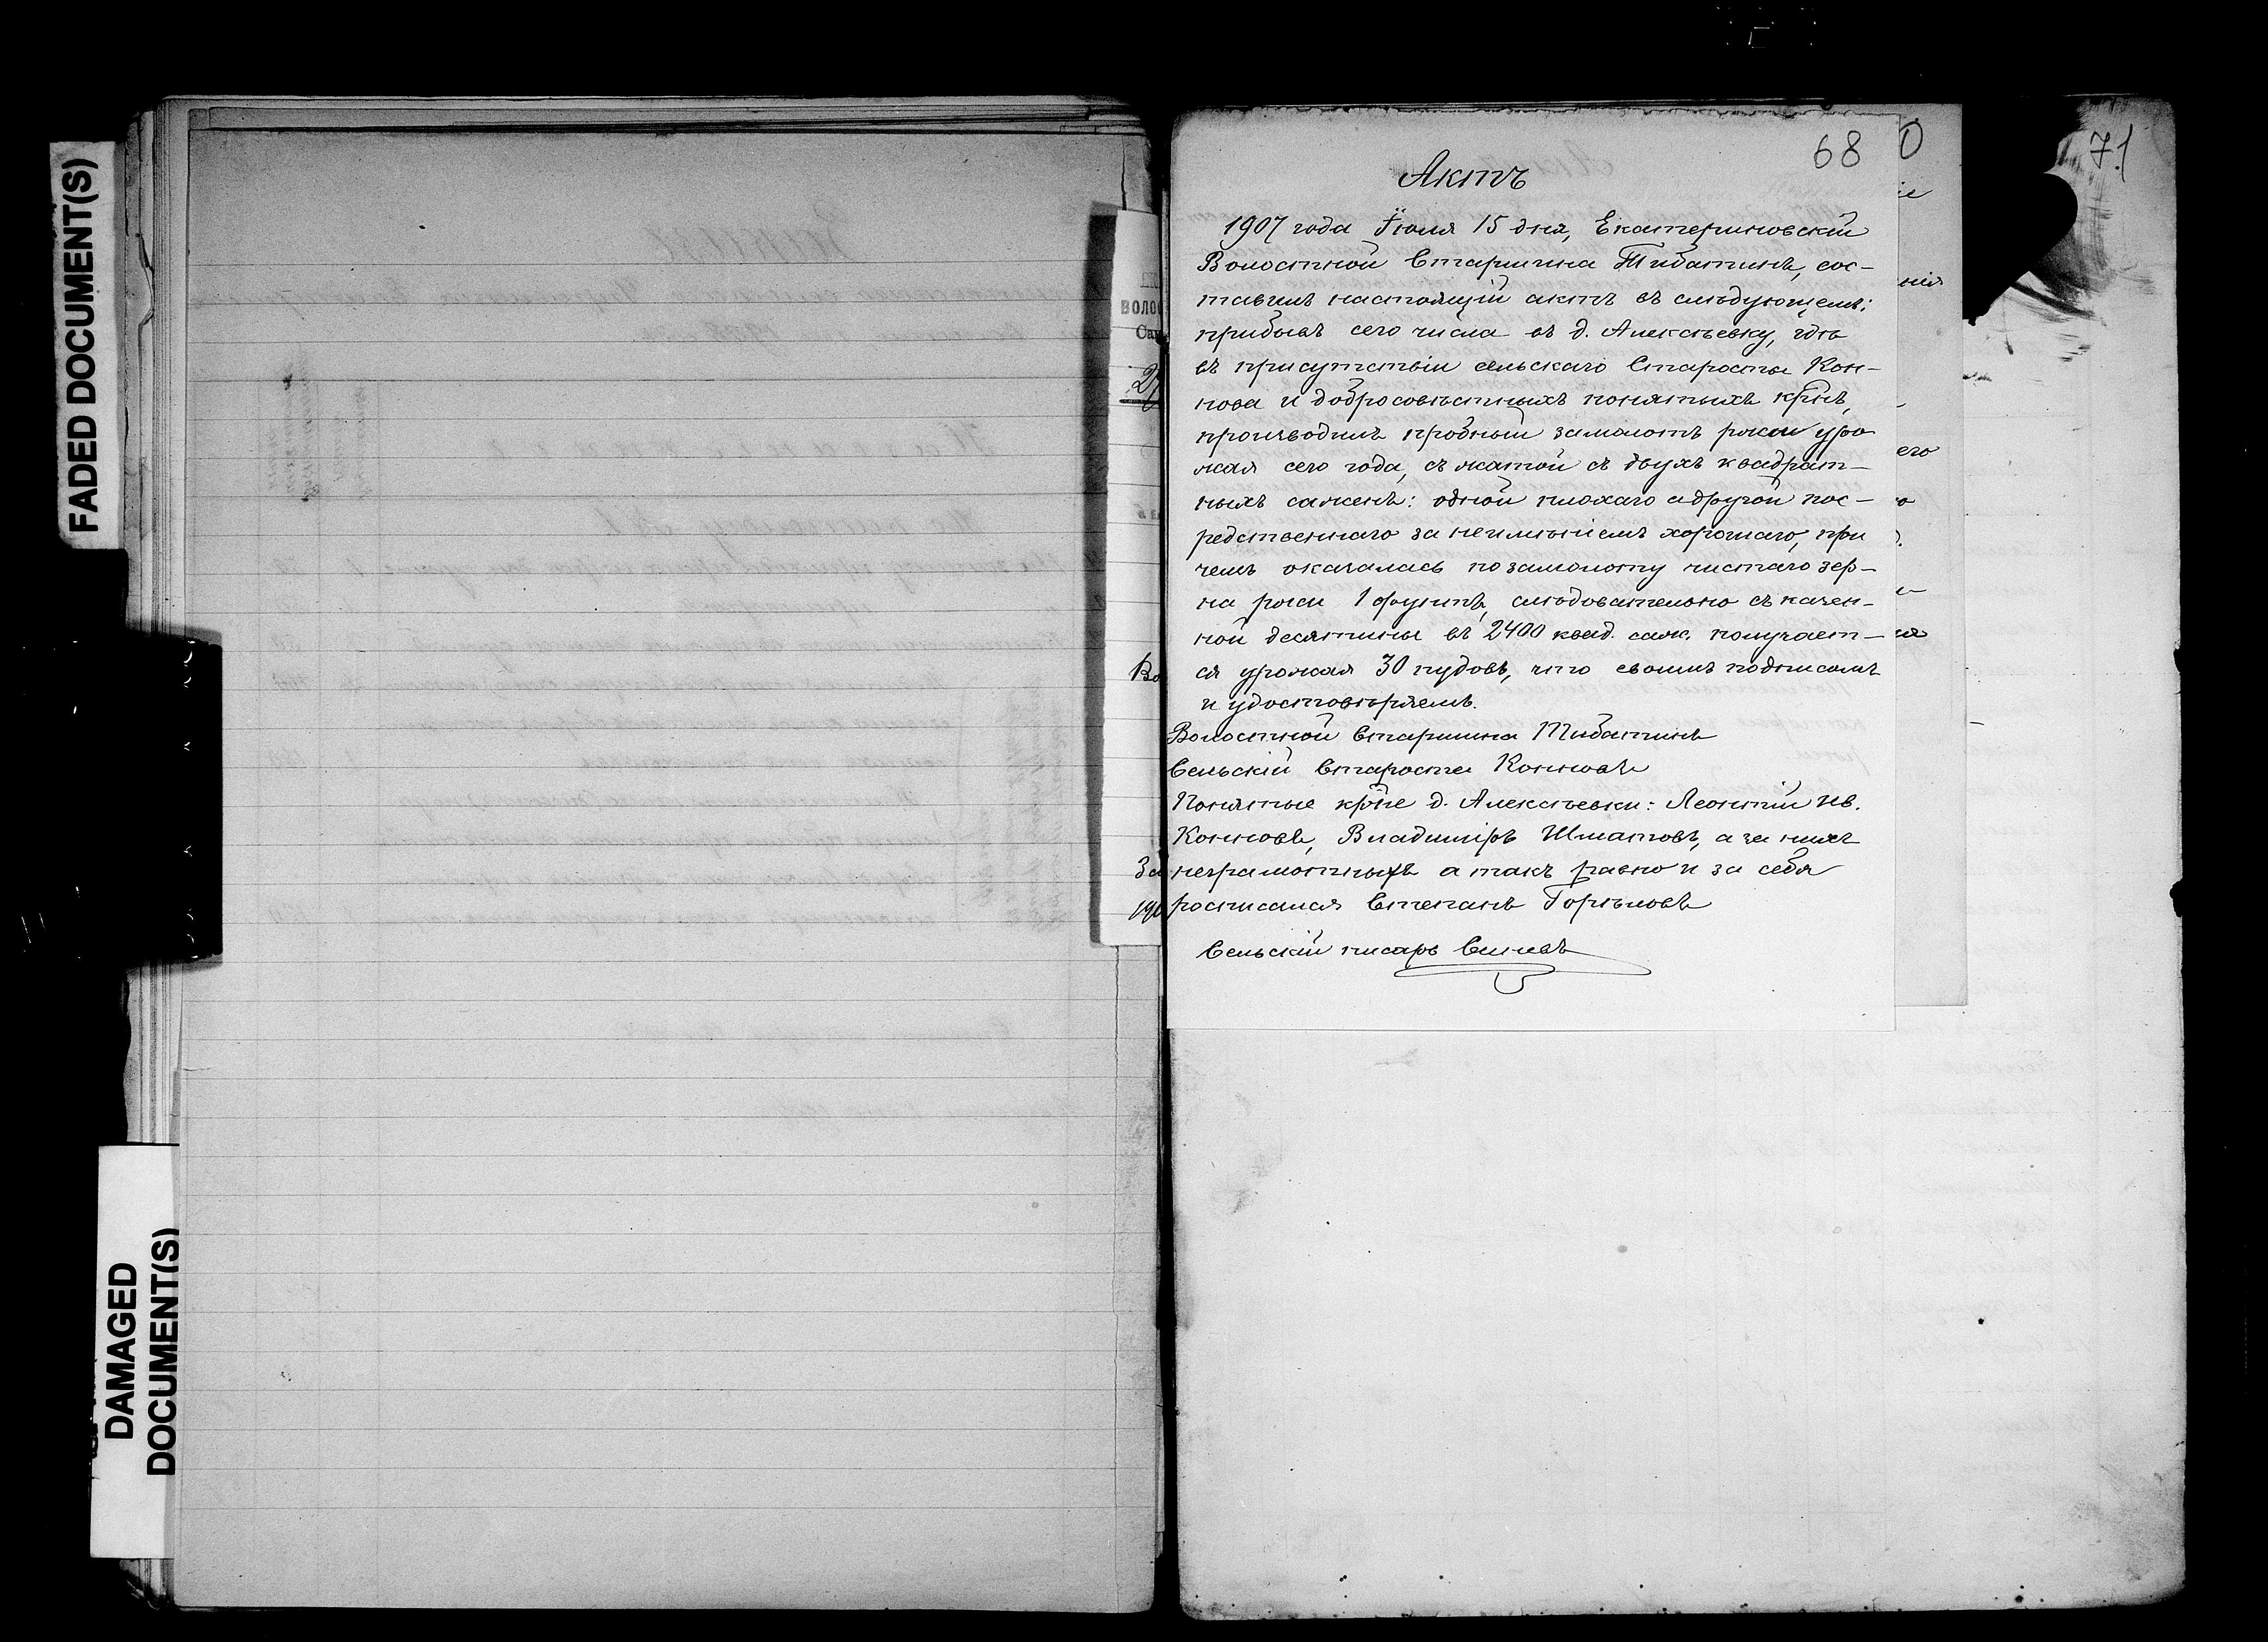 FADED DOCUMENT(S)
DAMAGED
DOCUMENT(S)
71
68
Актъ
1907 года Іюля 15 дня, Екатериновскій
Волостной Старшина Шибаткинъ, сос-
тавилъ настоящій актъ въ слѣдующемъ:
прибывъ сего числа въ д. Алексѣевку, гдѣ
въ присутствіи сельскаго Старосты Кон-
нова и добросовѣстныхъ понятыхъ кр̃нъ,
производилъ пробный замолотъ ржи уро
жая сего года, съжатой съ двухъ квадрат-
ныхъ сажень: одной плохаго а другой пос-
редственнаго за неимѣніемъ хорошаго, при
чемъ оказалась по замолоту чистаго зер-
на ржи 1 фунтъ, слѣдовательно съ казен-
ной десятины въ 2400 квад. саж. получает-
ся урожая 30 пудовъ, что своимъ подписомъ
и удостовѣряемъ.
Волостной Старшина
Сельскій Староста Конновъ
Понятые кр̃не д. Алексѣевки: Леонтій Ив.
Конновъ, Владиміръ Шматовъ, а за нихъ
неграмотныхъ а такъ равно и за себя
росписался Степанъ Горѣловъ
Сельскій писарь